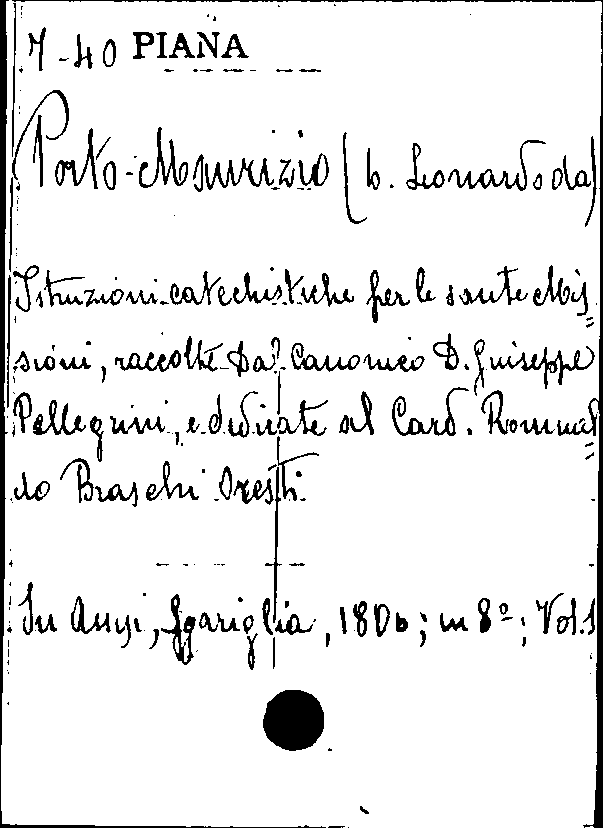 7-40 PIANA
Porto-Maurizio (b. Leonardo da)
Istruzioni catechistiche per le sante Mis=
sioni, raccolte dal Canonico D. Giuseppe
Pellegrini, e dedicate al Card. Romual=
do Braschi Onesti
In Assisi, Sgariglia, 1806; in 8º; Vol. 1